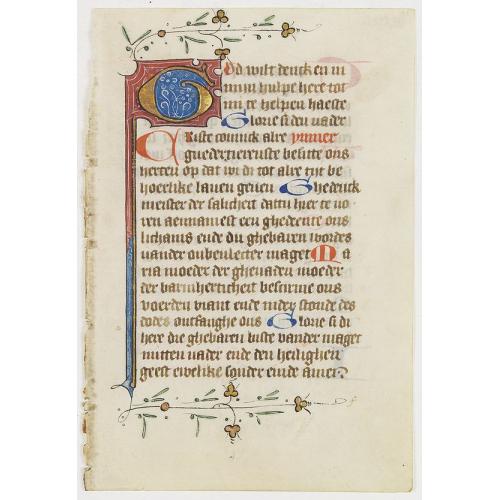 God wilt denck en in
minn hulpe here tot
mi te helpen haeste
Glorie si den vader
Criste coninck alre ymmer
guedertierenste besitte ons
herten op dat wi di tot alre tijt be
hoerlike laven geven Ghedenck
meister der salicheit dattu hier te vo
ren aennamest een ghedeente ons
lichams ende du ghebaren wordes
vander onbevlecter maget Ma
ria moeder der ghenaden moeder
der barmherticheit bescrime ons
voerden viant ende inder stonde des
dodes ontfanghe ons Glorie si di
here die ghebaren biste vander maget
mitten vader ende den heiligen
geest ewelike sonder einde amen